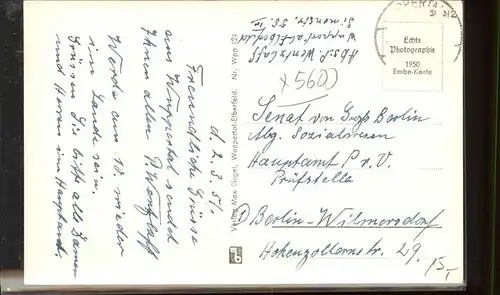 d. 2. 3. 51.
Freundliche Grüsse
aus Wuppertal sendet
Ihnen allen P. Wentzlaff
Werde am 10. wieder
im Lande sein.
Grüssen Sie bitte alle Damen
und Herren im Hauptamt.
Verlag Max Biegel, Wuppertal-Elberfeld. Nr. Wpp 224
Abs: P. Wentzlaff
Wuppertal-Elberfeld
Simonstr.
Echte
Photographie
1950
Embe-Karte
x5600
Senat von Groß Berlin
Abg. Sozialwesen
Hauptamt P. u. V.
Prüfstelle
1) Berlin-Wilmersdorf
Hohenzollernstr. 29.
15,-